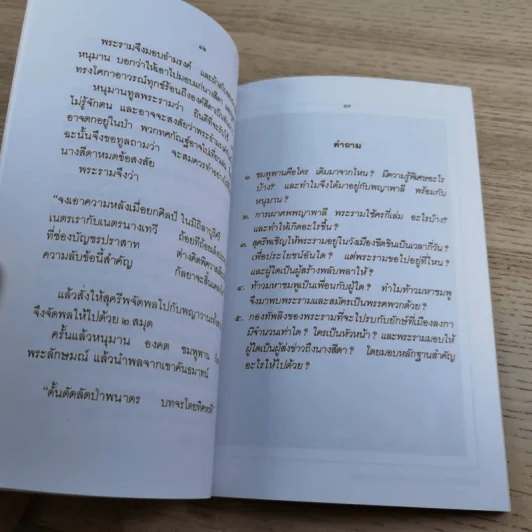 ๑๒
พระรามจึงมอบธำมรงค์ และผ้าสไบ
หนุมาน บอกว่าให้เอาไปมอบแก่นางสีดา
ทรงโศกาอาวรณ์ทุกข์ร้อนถึงองค์สีดา
หนุมานทูลพระรามว่า ยินดีที่จะรับใช้
ไม่รู้จักตน และอาจจะสงสัยว่าพระราม
อาจตกอยู่ในป่า พวกทศกัณฐ์อาจ
ฉะนั้นจึงขอทูลถามว่า จะสมควรทำ
นางสีดาหมดข้อสงสัย
พระรามจึงว่า
"จงเอาความหลังเมื่อยกศิลป์ ในมิถิลาบูรีศรี
เนตรเรากับเนตรนางเทวี
ที่ช่องบัญชรปราสาท ต่างคิดพิศวาส
ความลับข้อนี้สำคัญ กัลยาจะสิ้น
แล้วสั่งให้สุครีพจัดพลไปกับพญาวานร
จึงจัดพลให้ไปด้วย ๒ สมุด
ครั้นแล้วหนุมาน องคต ชมพูพาน
พระลักษมณ์ แล้วนำพลจากเขาคันธมาทน์
"ดั้นดัดลัดป่าพนาดร บทจรโดยทิศ
๑๓
คำถาม
๑. ชมพูพานคือใคร เดิมมาจากไหน ? มีความรู้พิเศษอะไร
บ้าง? และทำไมจึงได้มาอยู่กับพญาพาลี พร้อมกับ
หนุมาน ?
๒. การผาศพพญาพาลี พระรามใช้ศรกี่เล่ม อะไรบ้าง?
และทำให้เกิดอะไรขึ้น ?
๓. สุครีพเชิญให้พระรามอยู่ในวังเมืองขีดขินเป็นเวลากี่วัน ?
เพื่อประโยชน์อันใด ? แต่พระรามขอไปอยู่ที่ไหน ?
และผู้ใดเป็นผู้สร้างพลับพลาให้ ?
๔. ท้าวมหาชมพูเป็นเพื่อนกับผู้ใด ? ทำไมท้าวมหาชมพู
จึงมาพบพระรามและสมัครเป็นพรรคพวกด้วย ?
๕. กองทัพลิงของพระรามที่จะไปรบกับยักษ์ที่เมืองลงกา
มีจำนวนเท่าใด ? ใครเป็นหัวหน้า ? และพระรามมอบให้
ผู้ใดเป็นผู้ส่งข่าวถึงนางสีดา ? โดยมอบหลักฐานสำคัญ
อะไรให้ไปด้วย ?